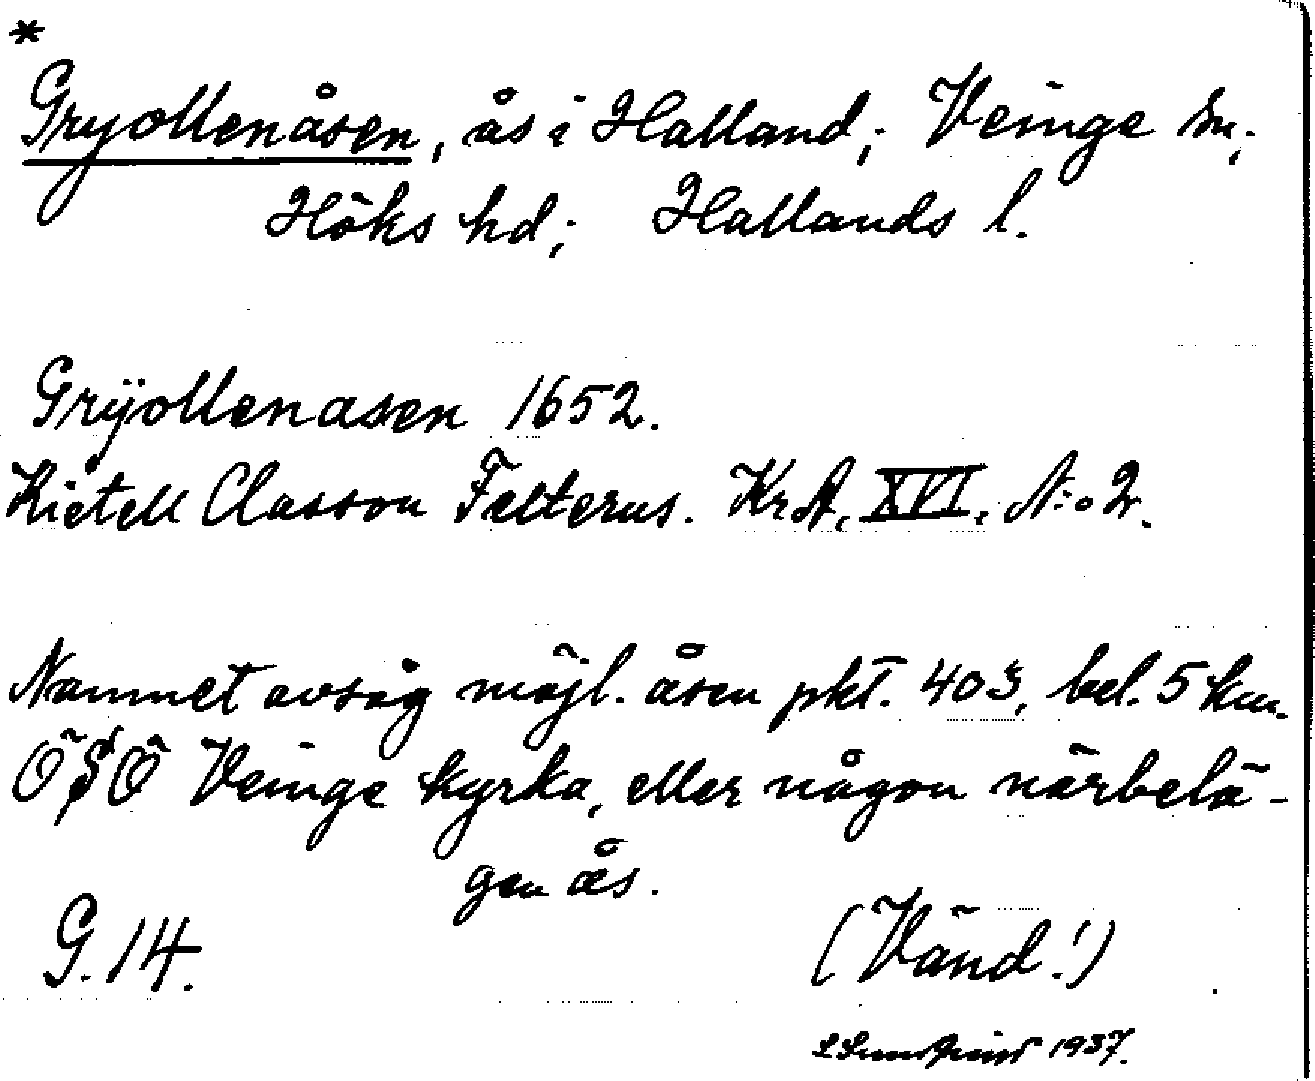 *
Gryollenåsen, ås i Halland; Veinge sn;
Höks hd; Hallands l.
Grÿollenasen 1652.
Kietell Classon Felterus. Kr.A. XVI. N:o 2.
Namnet avsåg möjl. åsen pkt. 403, bel. 5 km.
ÖSÖ Veinge kyrka, eller någon närbelä-
gen ås.
G. 14.
(Vänd!)
1937.